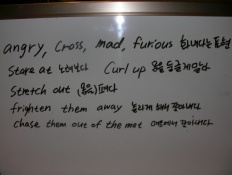 angry, cross, mad, furious 화나다는 표현
Stare at 노려보다 Curl up 몸을 둥글게 말다
Stretch out (몸을) 펴다
frighten them away 놀라게 해서 쫓아내다
chase them out of the mat 매트에서 쫓아내다